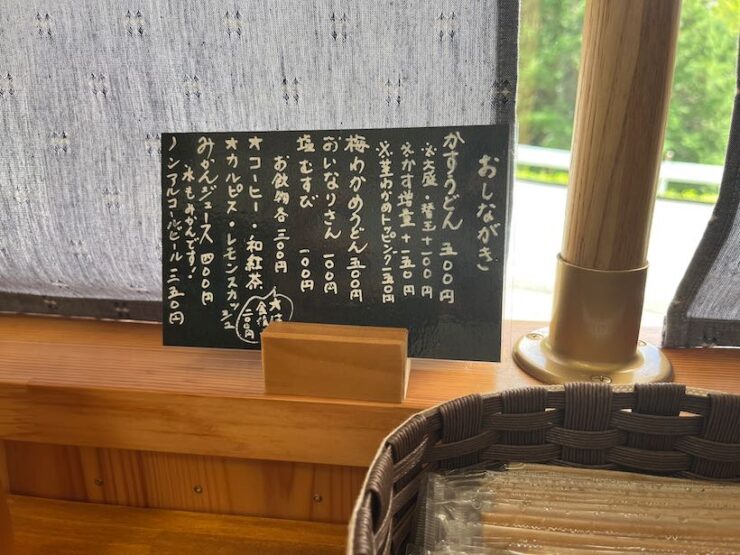 おしながき
かすうどん 五〇〇円
※大盛・替玉+一〇〇円
※かす増量+一五〇円
※茎わかめトッピング一五〇円
梅わかめうどん 五〇〇円
おいなりさん 一〇〇円
塩むすび 一〇〇円
お飲物各三〇〇円
★コーヒー・和紅茶
★カルピス・レモンスカッシュ
★は食後二〇〇円
みかんジュース 四〇〇円
氷もみかんです!
ノンアルコールビール 三五〇円